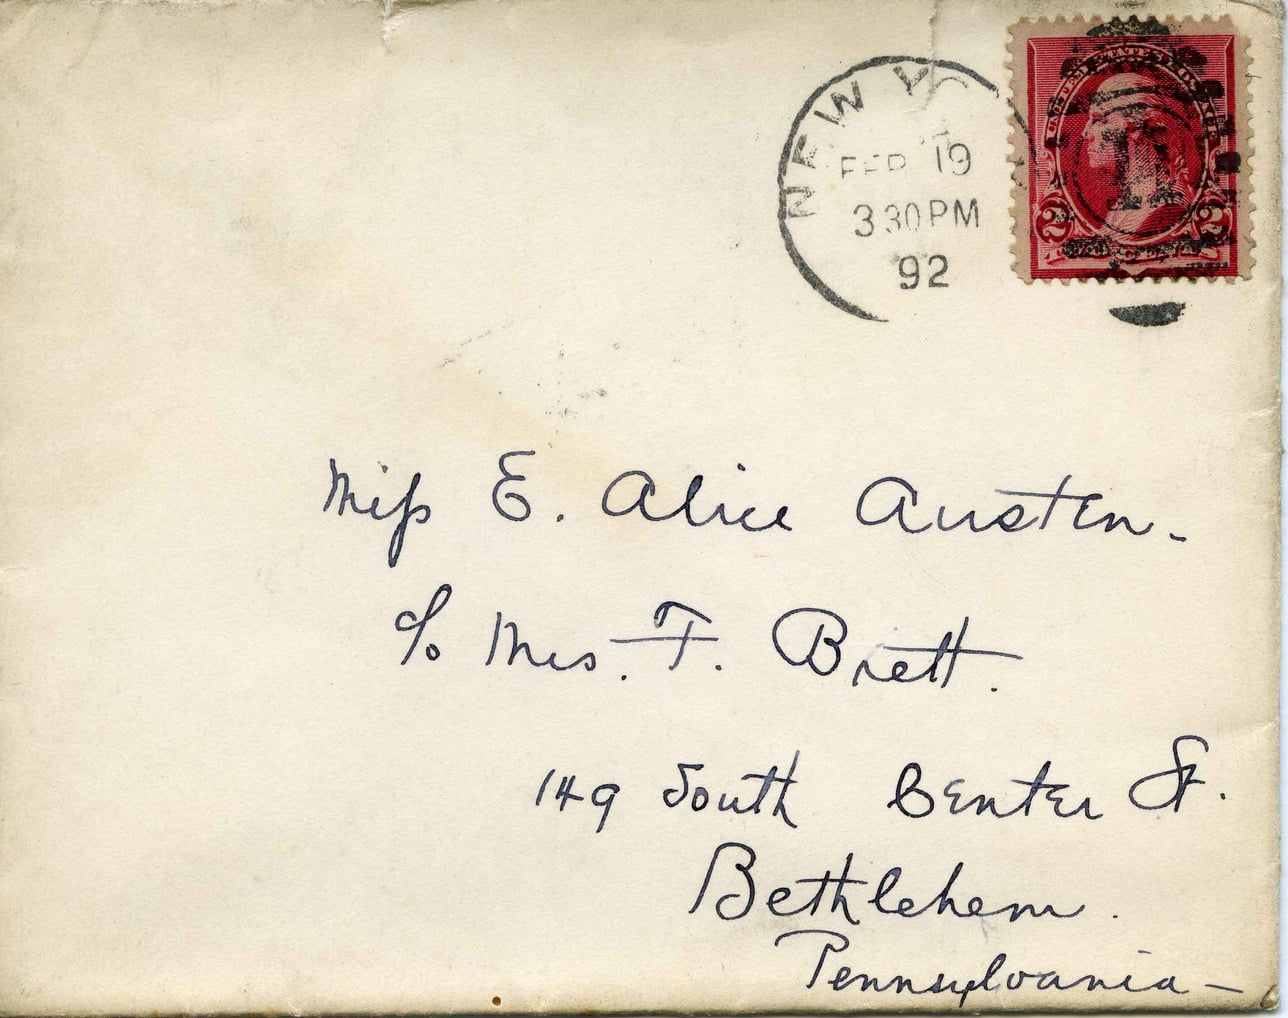 NEW YO
FEB 19
3 30 PM
92
UNITED STATES POSTAGE
2 2
11
Miss E. Alice Austen.
c/o Mrs. F. Brett.
149 South Center St.
Bethlehem.
Pennsylvania